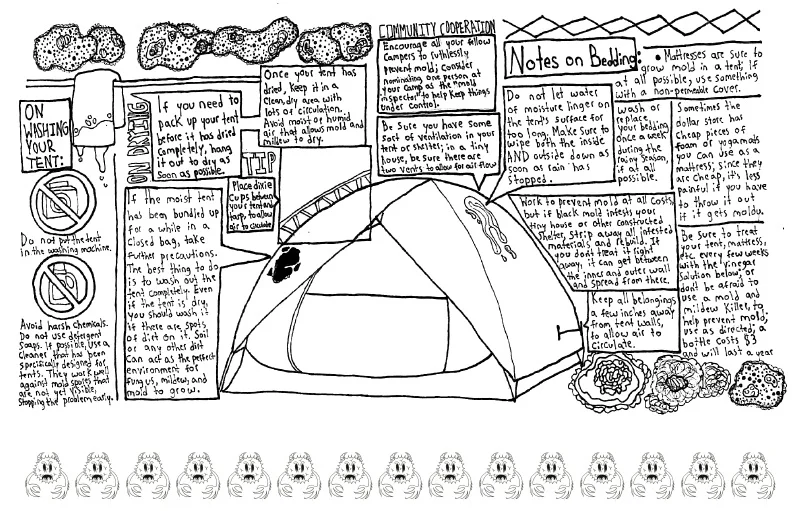 ON
WASHING
YOUR
TENT:
Do not put the tent
in the washing machine.
Avoid harsh chemicals.
Do not use detergent
Soaps. If possible, use a
Cleaner that has been
specifically designed for
tents. They work well
against mold spores that
are not yet visible,
Stopping the problem early.
ON DRYING
If you need to
pack up your tent
before it has dried
completely, hang
it out to dry as
soon as possible.
Once your tent has
dried, keep it in a
clean, dry area with
lots of circulation.
Avoid moist or humid
air that allows mold and
mildew to dry.
If the moist tent
has been bundled up
for a while in a
closed bag, take
further precautions.
The best thing to do
is to wash out the
tent completely. Even
if the tent is dry,
you should wash it
if there are spots
of dirt on it. Soil
or any other dirt
can act as the perfect
environment for
fungus, mildew, and
mold to grow.
TIP
Place dixie
Cups between
your tent and
tarp, to allow
air to circulate
COMMUNITY COOPERATION
Encourage all your fellow
Campers to ruthlessly
prevent mold; Consider
nominating one person at
your camp as the "mold
inspector" to help keep things
under control.
Be sure you have some
sort of ventilation in your
tent or skites; in a tiny
house, be sure there are
two vents to allow for air flow
Notes on Bedding:
• Mattresses are sure to
grow mold in a tent; If
at all possible, use something
with a non-permeable cover.
Do not let water
of moisture linger on
the tent's surface for
too long. Make sure to
wipe both the inside
AND outside down as
soon as rain has
stopped.
wash or
replace
your bedding
once a week
during the
rainy season,
if at all
possible.
Sometimes the
dollar store has
cheap pieces of
foam or yoga mats
you can use as a
mattress; since they
are cheap, it's less
painful if you have
to throw it out
if it gets moldy.
Work to prevent mold at all costs,
but if black mold infests your
tiny house or other constructed
Shelter, strip away all infested
materials and rebuild. If
you don't treat it right
away, it can get between
the inner and outer wall
and spread from there.
Keep all belongings
a few inches away
from tent walls,
to allow air to
circulate.
Be sure to treat
your tent, mattress,
etc. every few weeks
with the vinegar
solution below, or
don't be afraid to
use a mold and
mildew killer, to
help prevent mold;
use as directed; a
bottle costs $3
and will last a year